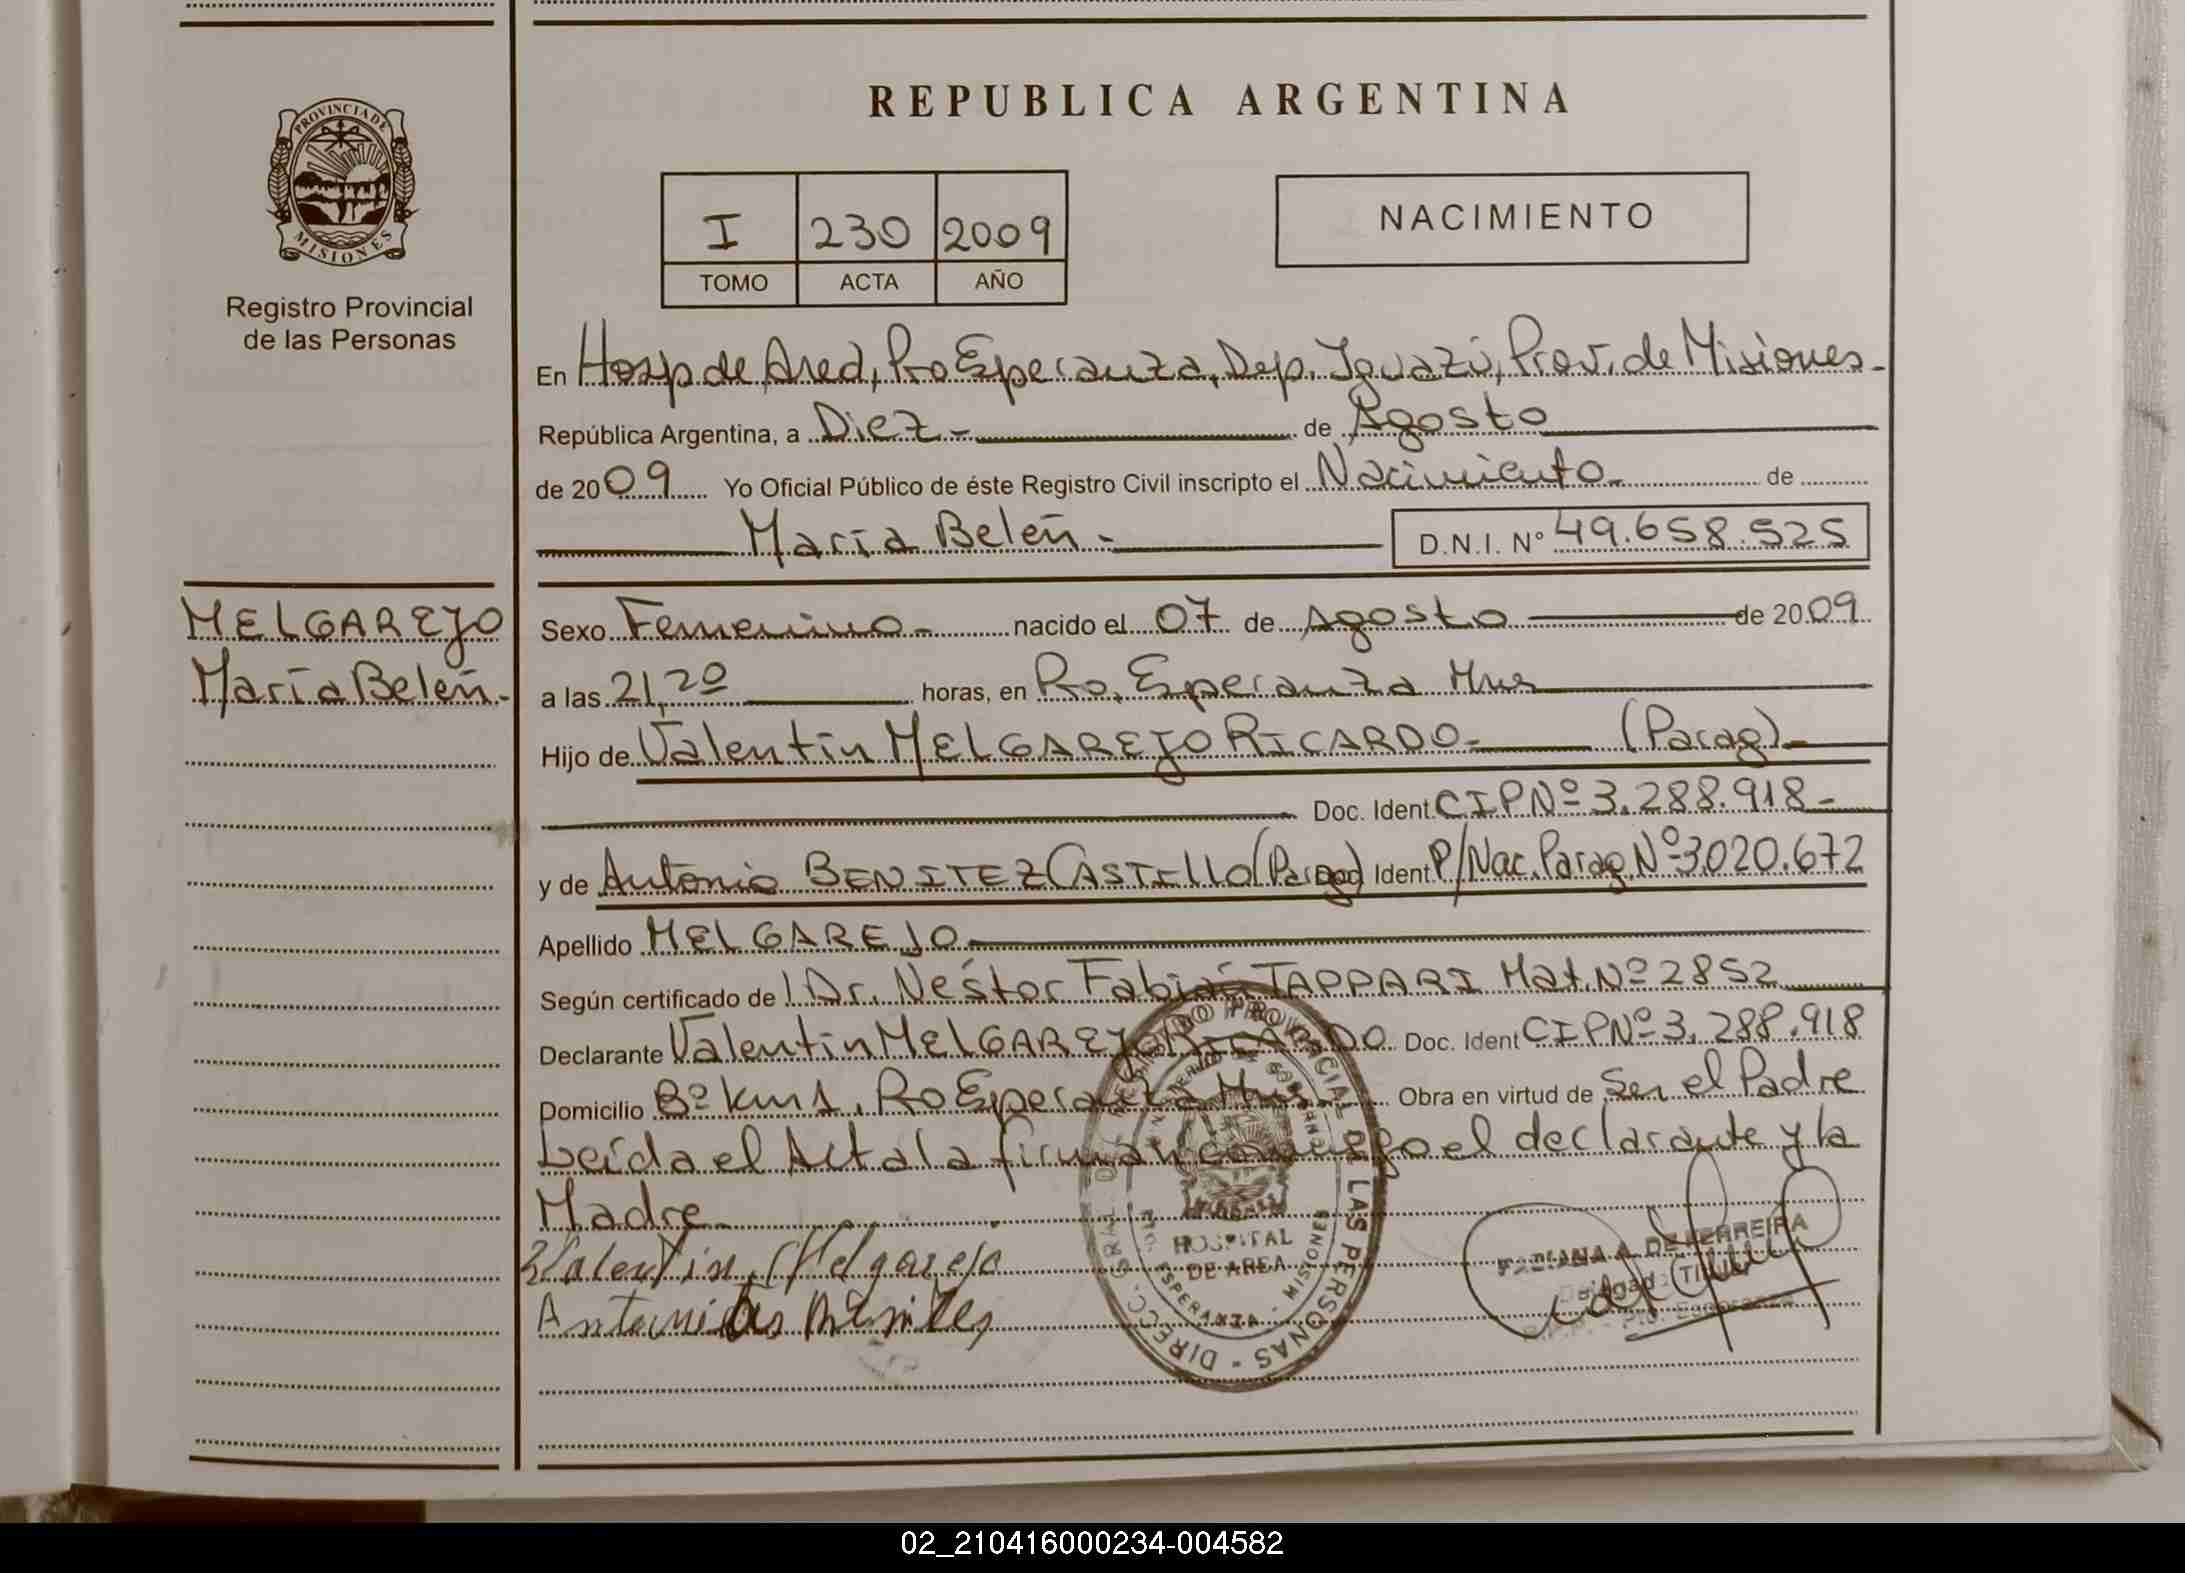 REPUBLICA ARGENTINA
PROVINCIA DE
MISIONES
Registro Provincial
de las Personas
I 230 2009
TOMO ACTA AÑO
NACIMIENTO
En Hosp de Area, Pto Esperanza, Dep. Iguazú, Prov. de Misiones-
República Argentina, a Diez- de Agosto
de 2009 Yo Oficial Público de éste Registro Civil inscripto el Nacimiento- de
María Belén- D.N.I. Nº 49.658.525
MELGAREJO
María Belén-
Sexo Femenino- nacido el 07 de Agosto de 2009
a las 21,20 horas, en Pto. Esperanza Mnes
Hijo de Valentín MELGAREJO RICARDO- (Parag)-
Doc. Ident. CIPNº 3.288.918-
y de Antonia BENITEZ CASTELLO (Parag) Doc Ident P/Nac. Parag. Nº 3020.672
Apellido MELGAREJO-
Según certificado de Dr. Néstor Fabián TAPPARI Mat. Nº 2852
Declarante Valentín MELGAREJO RICARDO Doc. Ident CIPNº 3.288.918
Domicilio Bº km 1, Pto Esperanza Mnes Obra en virtud de Ser el Padre
Leída el Acta la firman conmigo el declarante y la
Madre-
Valentin Melgarejo
DIRECC. GRAL. DEL REGISTRO PROVINCIAL DE LAS PERSONAS
HOSPITAL
DE AREA
ESPERANZA - MISIONES
A. DE FERREIRA
02_210416000234-004582